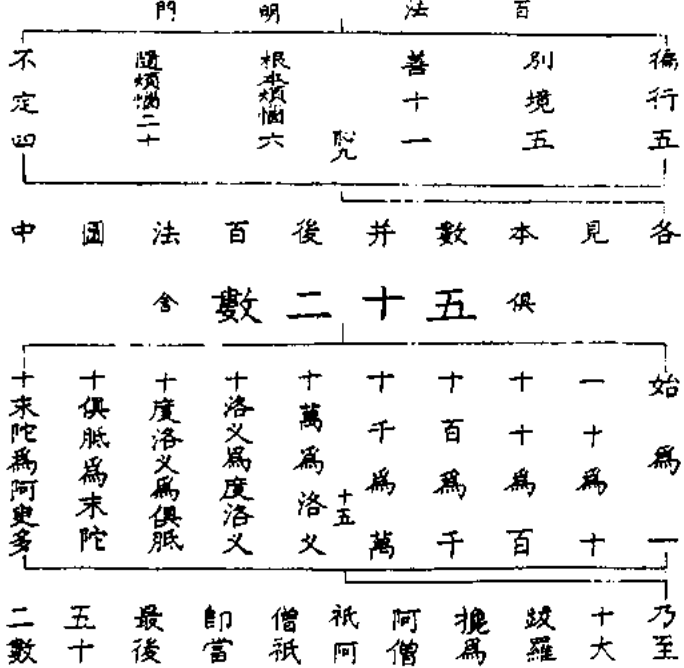 百法明門
徧行五
別境五
善十一
恥九
根本煩惱六
隨煩惱二十
不定四
各見本數并後百法圖中
俱五十二數舍
始爲一
一十爲十
十十爲百
十百爲千
十千爲萬
十五
十萬爲洛叉
十洛叉爲度洛叉
十度洛叉爲俱胝
十俱胝爲末陀
十末陀爲阿庾多
乃至
十大
跋羅
攙爲
阿僧
祇阿
僧祇
即當
最後
五十
二數